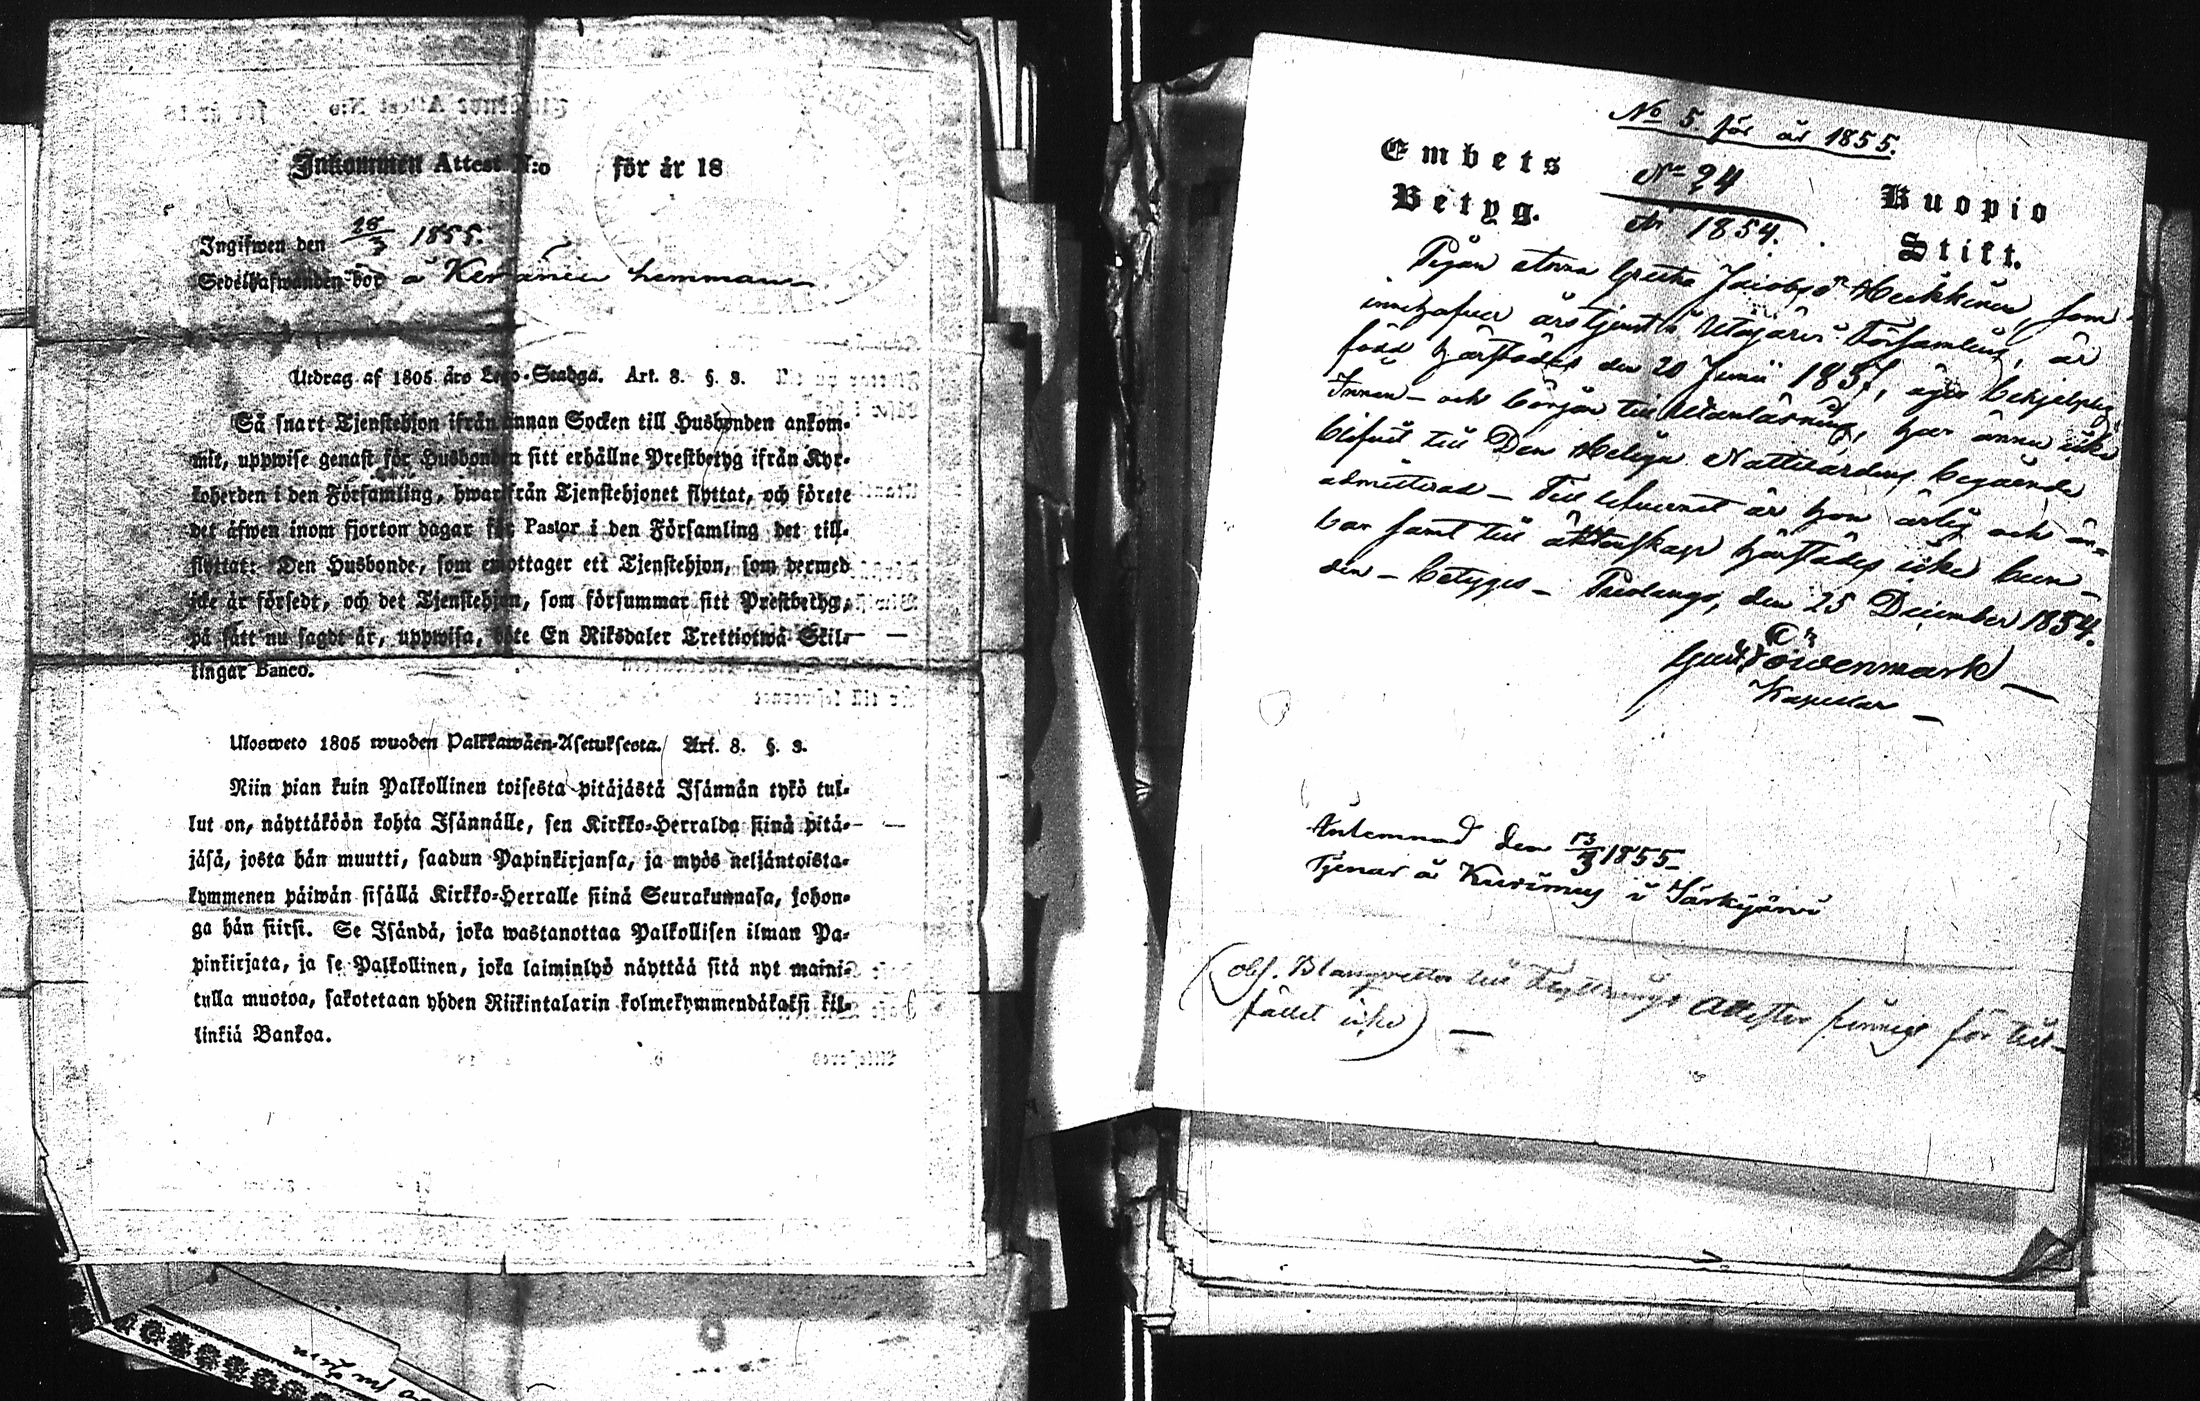 Inkommen Attest N:o för år 18
Ingifwen den 28/3 1855.
Sedelhafwanden bor å Keränen hemman
Utdrag af 1805 års Lego-Stadga. Art. 8. §. 3.
Så snart Tjenstehjon ifrån annan Socken till Husbonden ankom-
mit, uppwise genast för Husbonden sitt erhållne Prestbetyg ifrån Kyr-
koherden i den Församling, hwarifrån Tjenstehjonet flyttat, och förete
det äfwen inom fjorton dagar för Pastor i den Församling det till-
flyttat: Den Husbonde, som emottager ett Tjenstehjon, som dermed
icke är försedt, och det Tjenstehjon, som försummar sitt Prestbetyg,
på sätt nu sagdt är, uppwisa, böte En Riksdaler Trettiotwå Skil-
lingar Banco.
Ulosweto 1805 wuoden Palkkawäen-Asetuksesta. Art. 8. §. 3.
Niin pian kuin Palkollinen toisesta pitäjästä Isännän tykö tul-
lut on, näyttäköön kohta Isännälle, sen Kirkko-Herralda siinä pitä-
jäsä, josta hän muutti, saadun Papinkirjansa, ja myös neljäntoista-
kymmenen päiwän sisällä Kirkko-Herralle siinä Seurakunnasa, johon-
ga hän siirsi. Se Isändä, joka wastanottaa Palkollisen ilman Pa-
pinkirjata, ja se Palkollinen, joka laiminlyö näyttää sitä nyt maini-
tulla muotoa, sakotetaan yhden Riikintalarin kolmekymmendäkaksi kil-
linkiä Bankoa.
No 5 för år 1855.
Embets Betyg.
No 24
År 1854.
Kuopio Stift.
Pigan Greta Jacobsdr Heikkinen, som
innehafver årstjenst i Utajärvi Församling, är
född härstädes den 20 Junii 1837, äger behjelplig
Innan- och början till Utanläsning, har ännu icke
blifvit till Den Heliga Nattvardens begående
admitterad - Till lefvernet är hon ärlig och är-
bar samt till äktenskap härstädes icke bun-
den - betygas - Puolango, den 25 December 1854.
Gust. Löwenmark
Kapellan -
Anlemnad den 13/3 1855
Tjenar å Kurimus i Särkijärvi
(obs. Blanquetter till Flyttnings Attester finnes för till-
fället icke) -